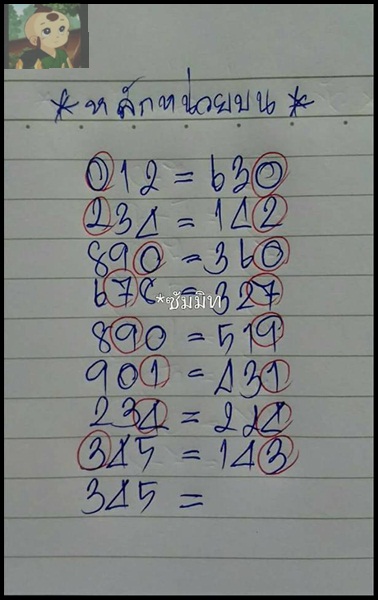 * หลักหน่วยบน *
012 = 630
234 = 142
890 = 360
678 = 327
*ซัมมิท
890 = 519
901 = 431
234 = 224
345 = 143
345 =